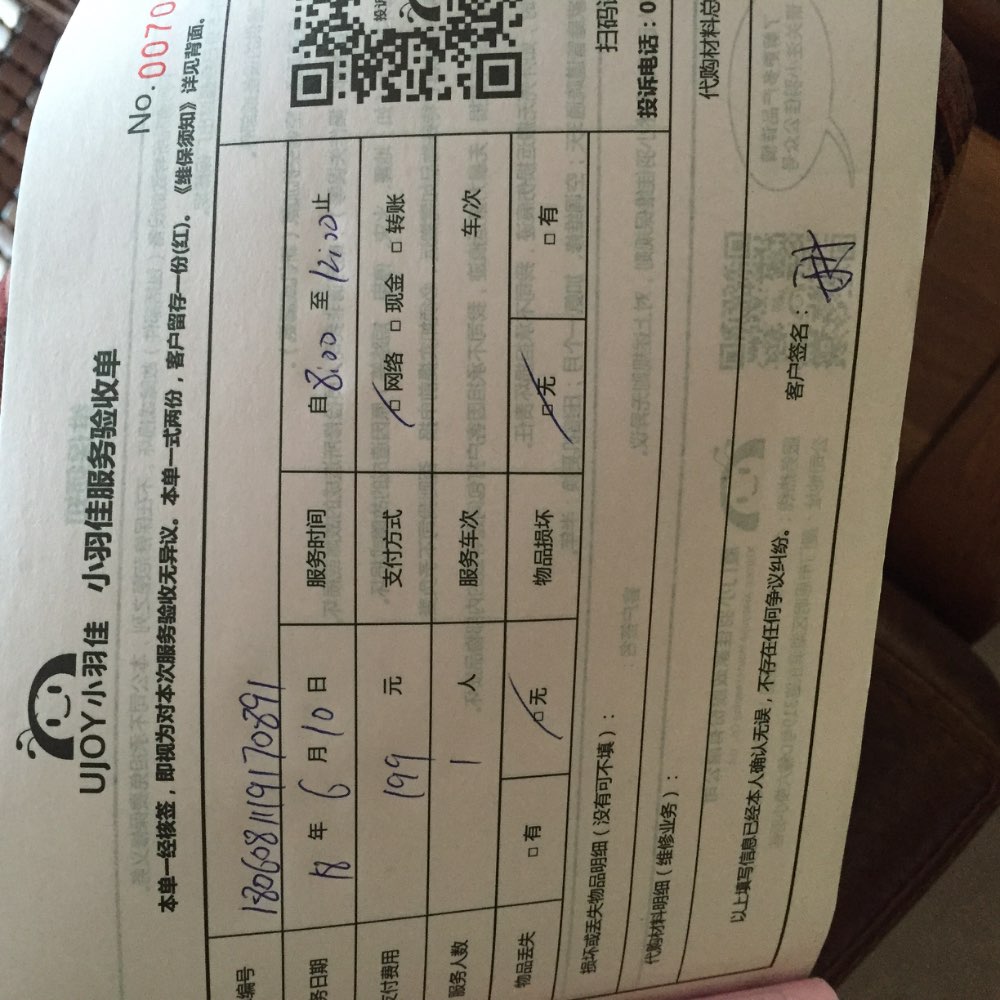 UJOY小羽佳 小羽佳服务验收单
No. 0070
本单一经核签，即视为对本次服务验收无异议。本单一式两份，客户留存一份(红)。《维保须知》详见背面。
编号 1806081119170891
务日期 18 年 6 月 10 日 服务时间 自 8:00 至 12:00 止
支付费用 199 元 支付方式 □ 网络 □ 现金 □ 转账
服务人数 1 人 服务车次 车/次
物品丢失 □ 有 □ 无 物品损坏 □ 无 □ 有
扫码
投诉电话：0
损坏或丢失物品明细（没有可不填）：
代购材料明细（维修业务）： 代购材料总
以上填写信息已经本人确认无误，不存在任何争议纠纷。 客户签名：